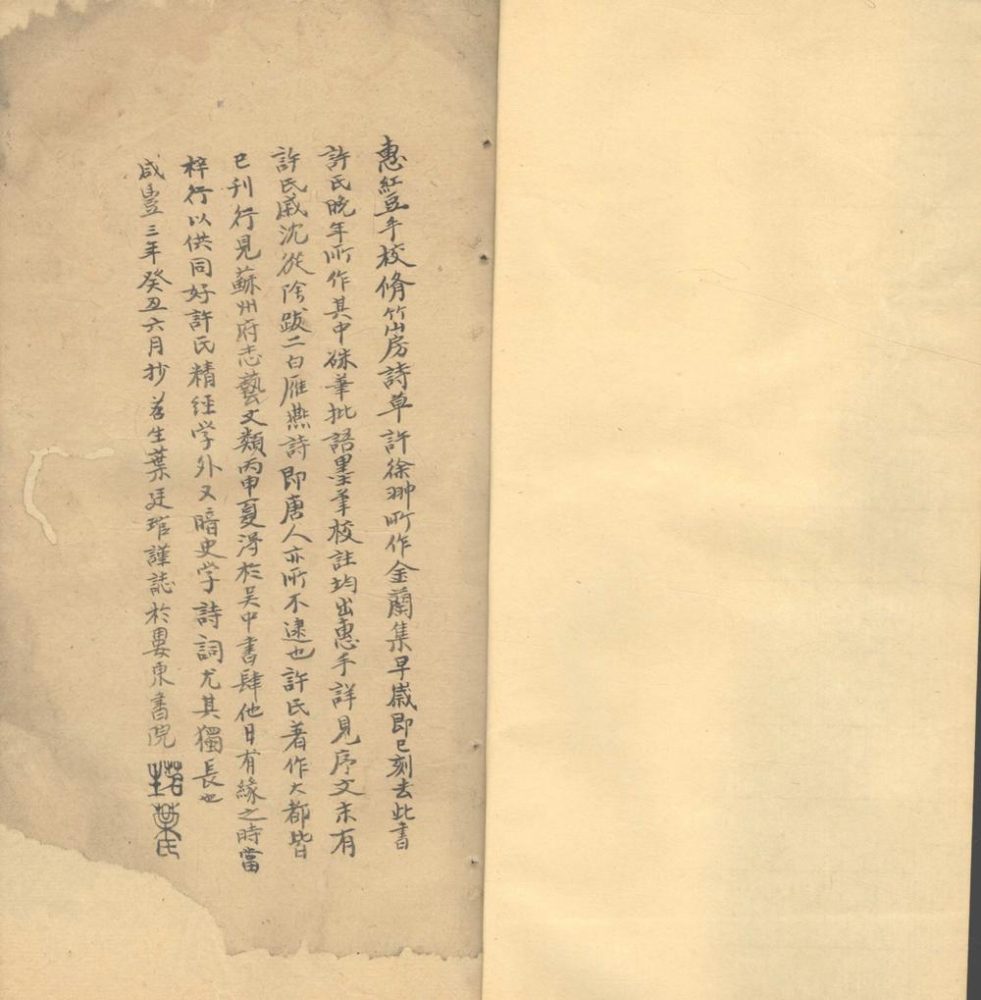 惠紅豆手校脩竹山房詩草許徐翀所作金蘭集早歲即已刻去此書
許氏晚年所作其中硃筆批語墨筆校註均出惠手詳見序文末有
許氏戚沈從隂跋二白雁燕詩即唐人亦所不逮也許氏著作大都皆
已刊行見蘇州府志藝文類丙申夏淂於吴中書肆他日有緣之時當
梓行以供同好許氏精經学外又暗史学詩詞尤其獨長也
咸豐三年癸丑六月抄苕生葉廷琯謹誌於婁東書院
葉氏